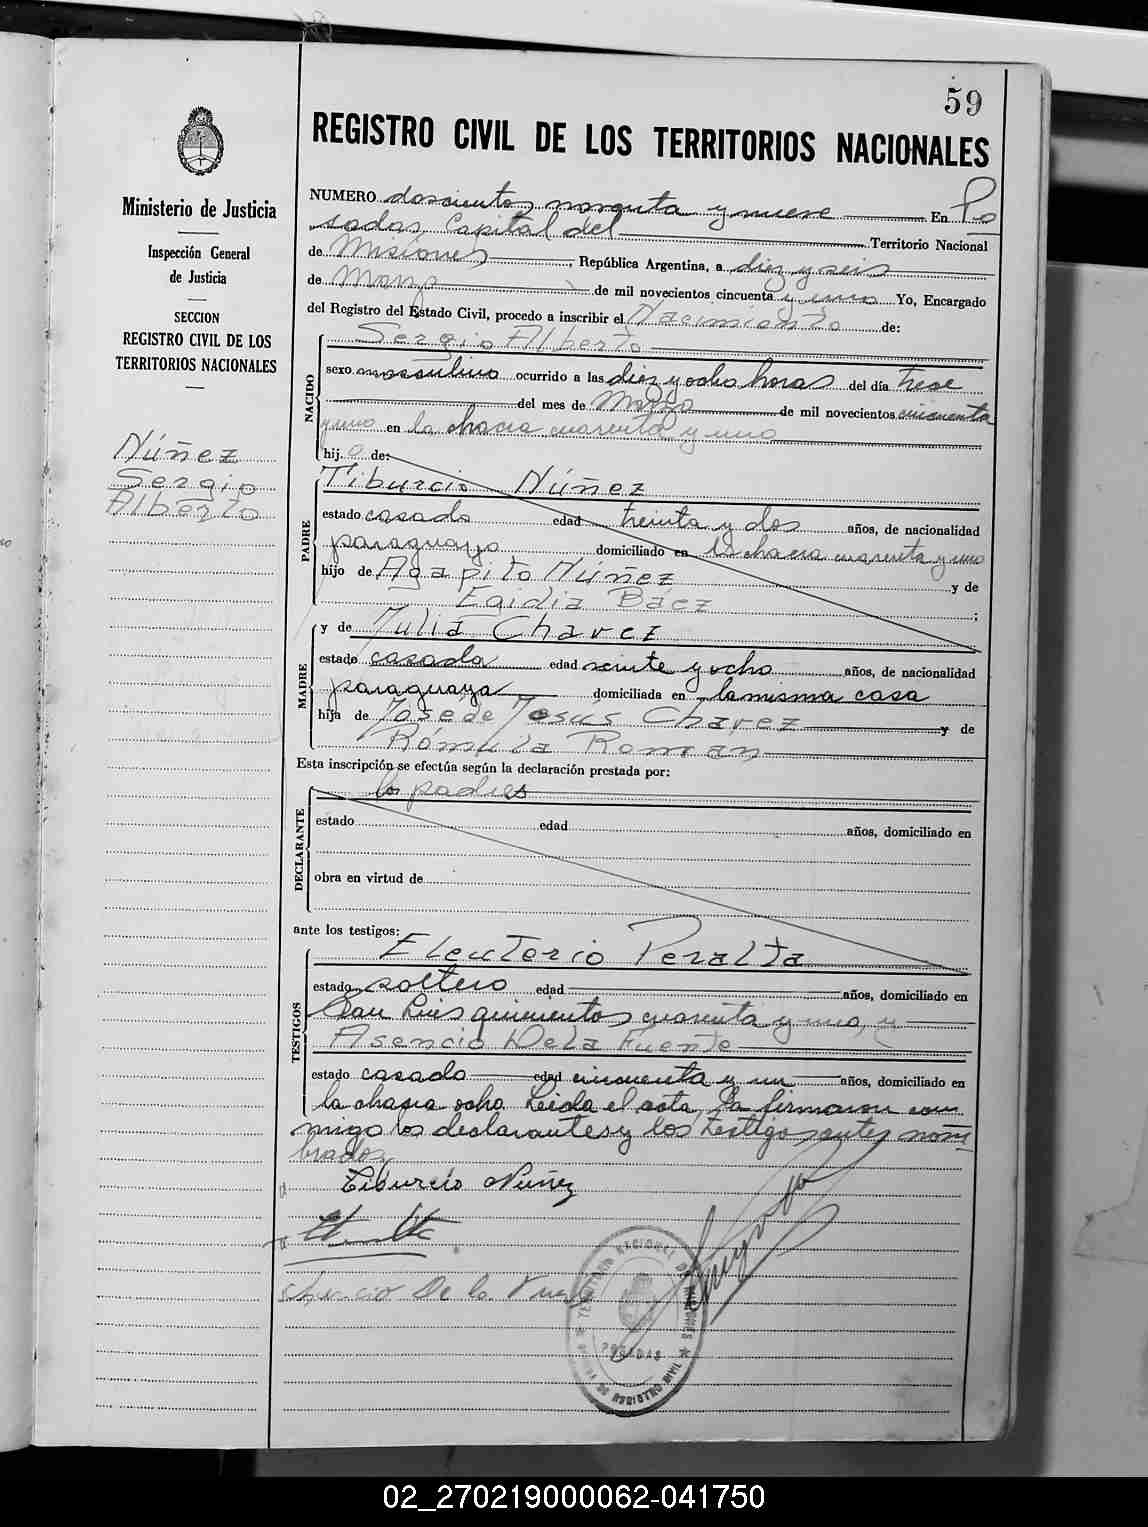 59
REGISTRO CIVIL DE LOS TERRITORIOS NACIONALES
Ministerio de Justicia
Inspección General
de Justicia
SECCION
REGISTRO CIVIL DE LOS
TERRITORIOS NACIONALES
Núñez
Sergio
Alberto
NUMERO doscientos noventa y nueve En Po
sadas, Capital del Territorio Nacional
de Misiones, República Argentina, a diez y seis
de Marzo de mil novecientos cincuenta y uno Yo, Encargado
del Registro del Estado Civil, procedo a inscribir el Nacimiento de:
Sergio Alberto
NACIDO
sexo masculino ocurrido a las diez y ocho horas del día trece
del mes de Marzo de mil novecientos cincuenta
y uno en la chacra cuarenta y uno
hijo de:
PADRE
Tiburcio Núñez
estado casado edad treinta y dos años, de nacionalidad
paraguayo domiciliado en la chacra cuarenta y uno
hijo de Agapito Núñez y de
Egidia Báez ;
MADRE
y de Julia Chavez
estado casada edad veinte y ocho años, de nacionalidad
paraguaya domiciliada en la misma casa
hija de José de Jesús Chavez y de
Rómula Roman
Esta inscripción se efectúa según la declaración prestada por:
los padres
DECLARANTE
estado edad años, domiciliado en
obra en virtud de
ante los testigos:
TESTIGOS
Eleuterio Peralta
estado soltero edad años, domiciliado en
San Luis quinientos cuarenta y uno, y
Asencio De la Fuente
estado casado edad cincuenta y un años, domiciliado en
la chacra ocho. Leida el acta, la firmaron con
migo los declarantes y los testigos antes nom
brados,
Tiburcio Núñez
Asencio De la Fuente
TERRITORIO NACIONAL DE MISIONES
POSADAS
DE REGISTRO CIVIL
02_270219000062-041750